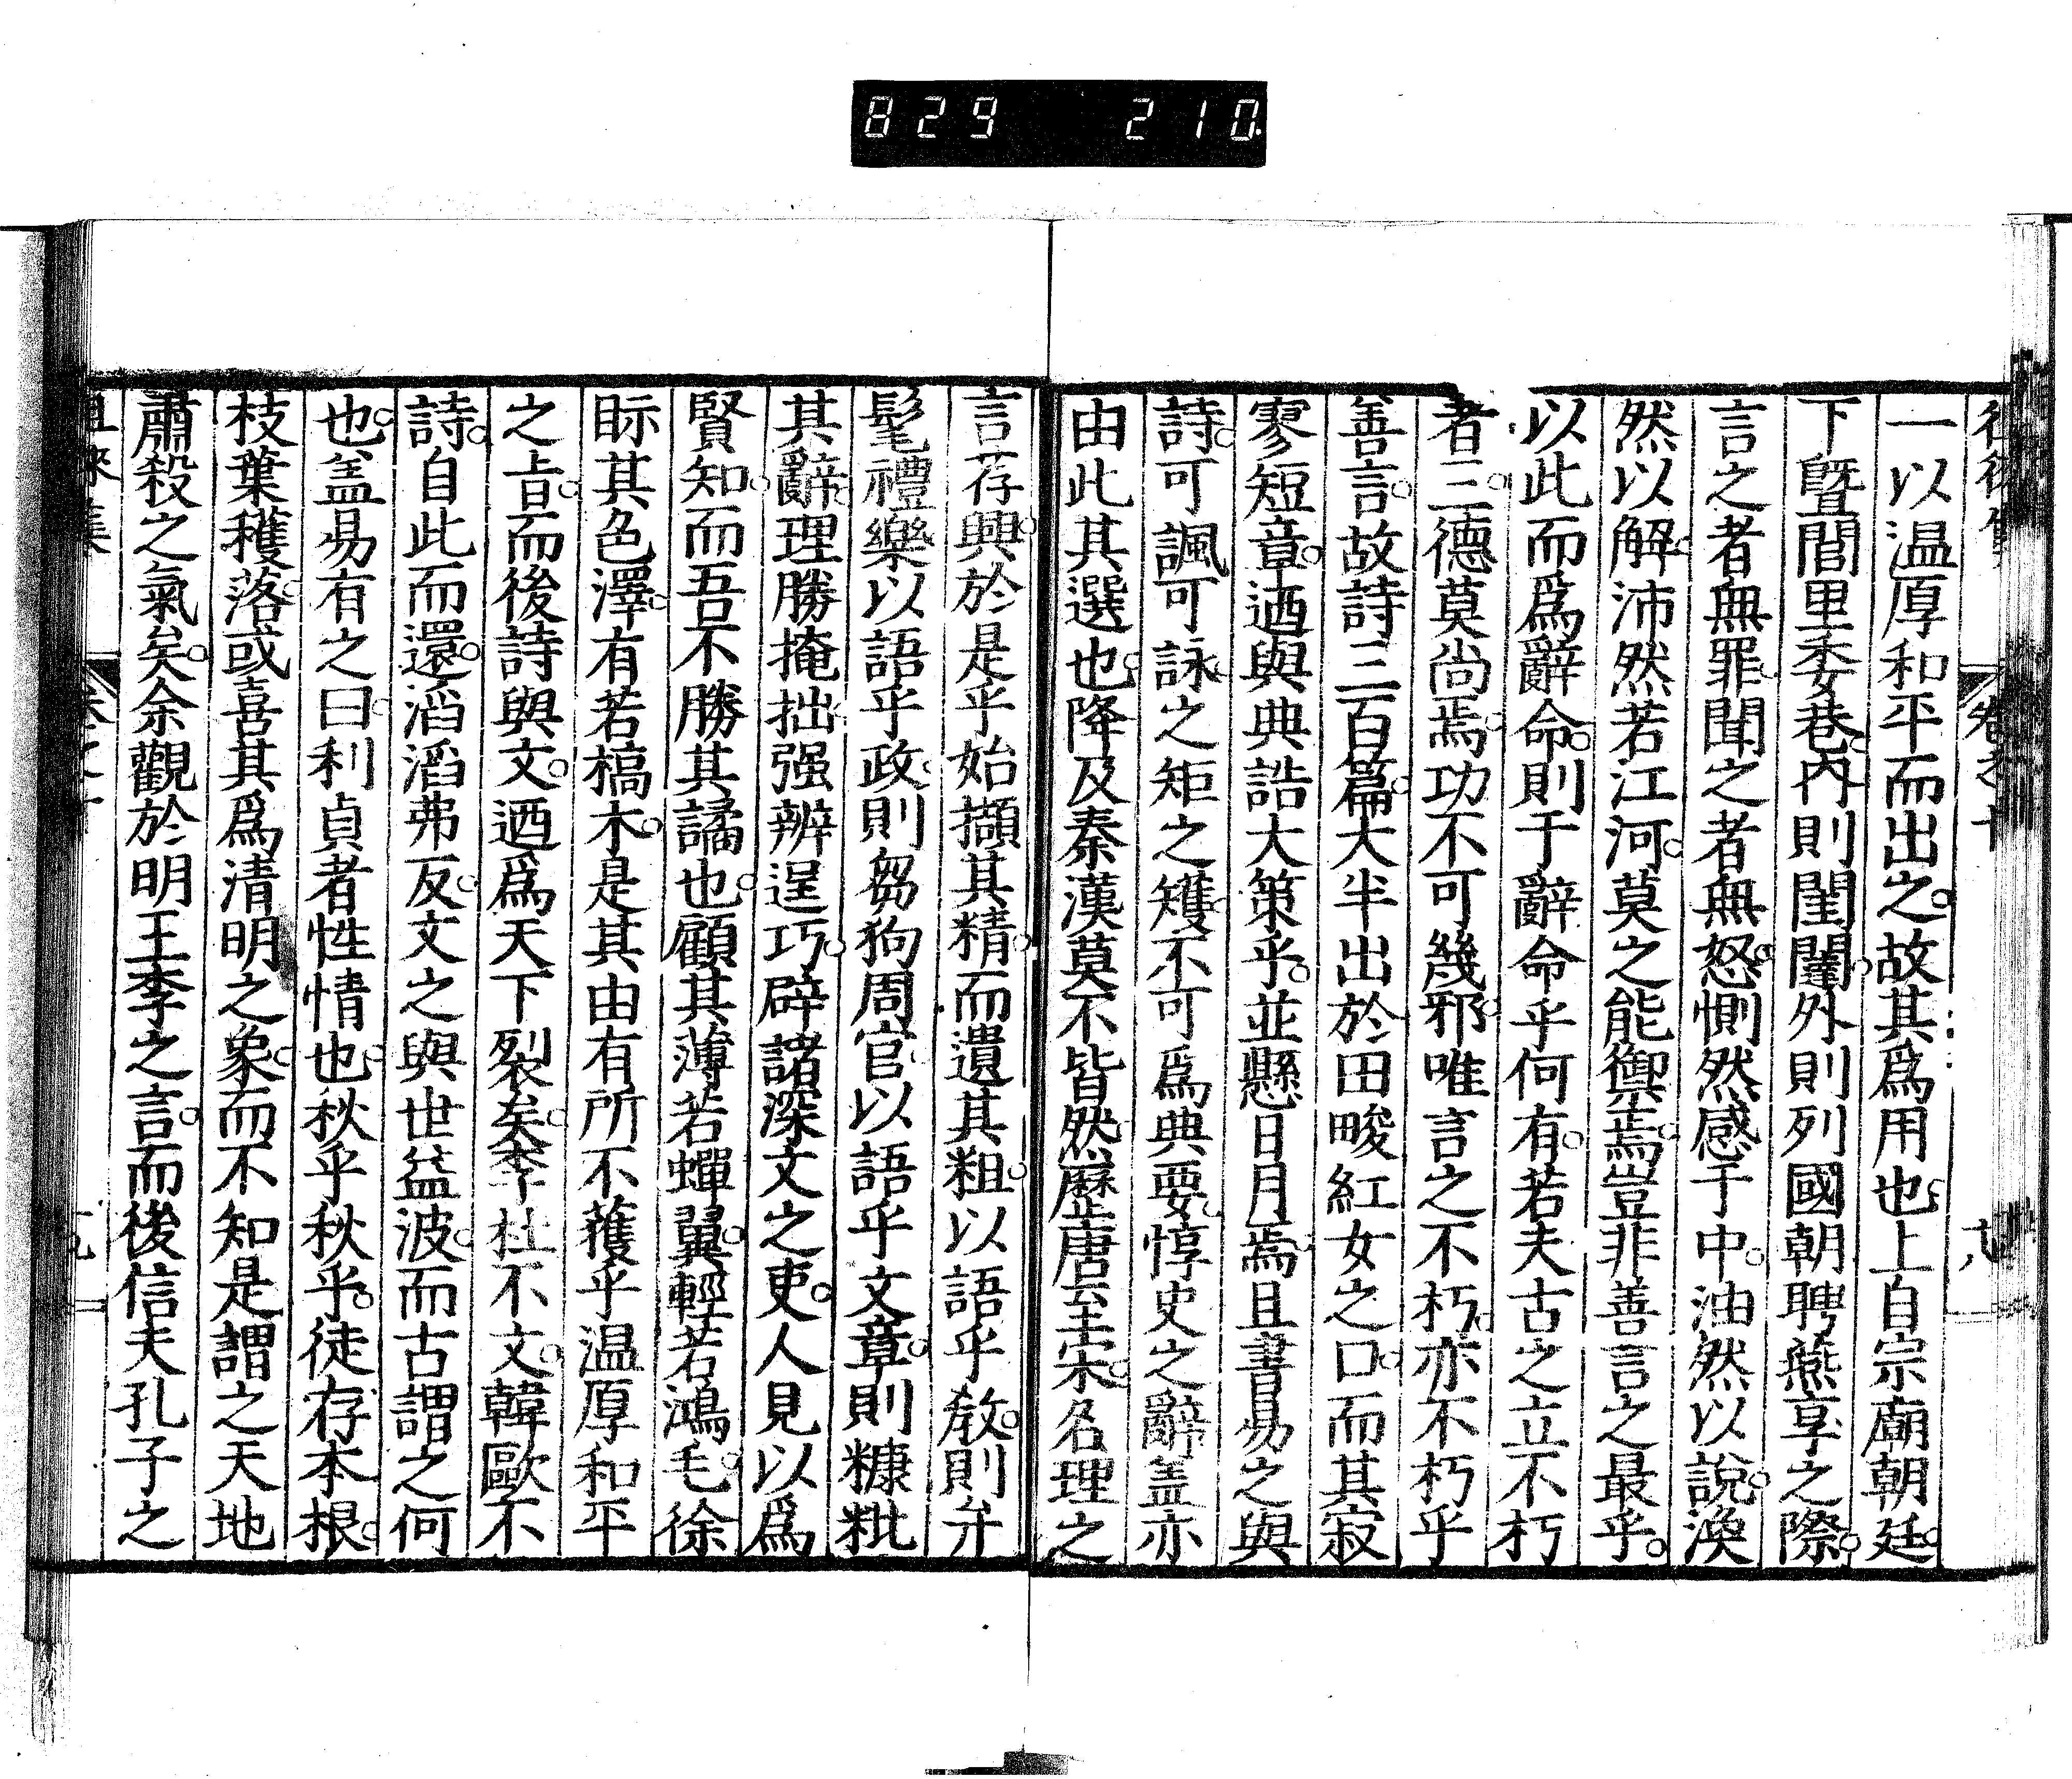 829 210
卷之十
十八
一以温厚和平而出之。故其爲用也。上自宗廟朝廷。
下曁閭里委巷。内則閨闥。外則列國朝聘燕享之際。
言之者無罪。聞之者無怒。惻然感于中。油然以說。渙
然以解。沛然若江河。莫之能禦焉。豈非善言之最乎。
以此而爲辭命。則于辭命乎何有。若夫古之立不朽
者三。德莫尚焉。功不可幾邪。唯言之不朽。亦不朽乎
善言。故詩三百篇。大半出於田畯紅女之口。而其寂
寥短章。迺與典誥大策乎。並懸日月焉。且書易之與
詩。可諷可詠。之矩之矱。不可爲典要。惇史之辭。盖亦
由此其選也。降及秦漢。莫不皆然。歷唐至宋。名理之
言荐興。於是乎始擷其精。而遺其粗。以語乎敎。則弁
髦禮樂。以語乎政。則芻狗周官。以語乎文章。則糠粃
其辭。理勝掩拙。强辨逞巧。辟諸深文之吏。人見以爲
賢知。而吾不勝其譎也。顧其薄若蟬翼。輕若鴻毛。徐
眎其色澤。有若槁木。是其由有所不獲乎温厚和平
之旨。而後詩與文。迺爲天下裂矣。李杜不文。韓歐不
詩。自此而還。滔滔弗反。文之與世益波。而古謂之何
也。盖易有之曰。利貞者性情也。秋乎秋乎。徒存本根。
枝葉穫落。或喜其爲清明之象。而不知是謂之天地
肅殺之氣矣。余觀於明王李之言。而後信夫孔子之
徠集
十九